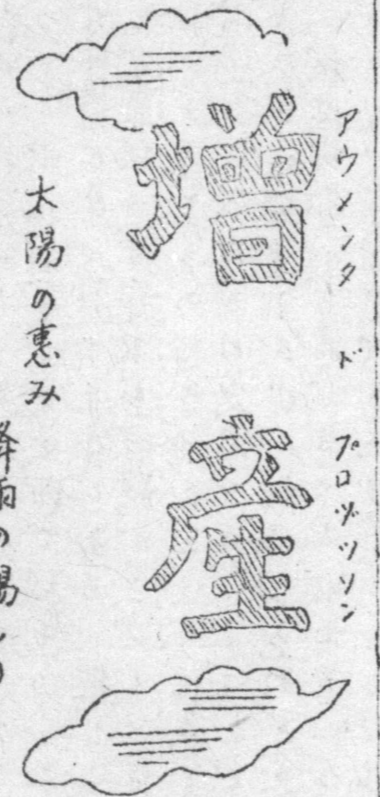 アウメンタ ド プロヅツソン
増産
太陽の恵み
雨の